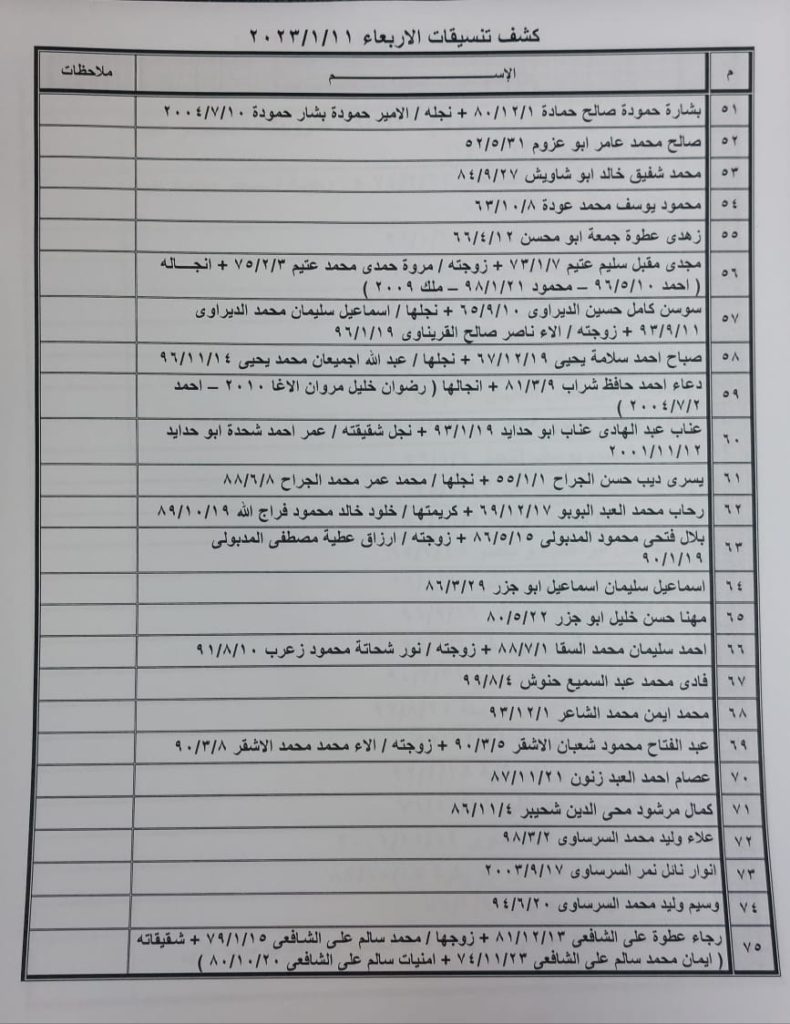 كشف تنسيقات الاربعاء ٢٠٢٣/١/١١
م الإســـــــــــم ملاحظات
٥١ بشارة حمودة صالح حمادة ٨٠/١٢/١ + نجله / الامير حمودة بشار حمودة ٢٠٠٤/٧/١٠
٥٢ صالح محمد عامر ابو عزوم ٥٢/٥/٣١
٥٣ محمد شفيق خالد ابو شاويش ٨٤/٩/٢٧
٥٤ محمود يوسف محمد عودة ٦٣/١٠/٨
٥٥ زهدى عطوة جمعة ابو محسن ٦٦/٤/١٢
٥٦ مجدى مقبل سليم عتيم ٧٣/١/٧ + زوجته / مروة حمدى محمد عتيم ٧٥/٢/٣ + انجـــاله
( احمد ٩٦/٥/١٠ – محمود ٩٨/١/٢١ – ملك ٢٠٠٩ )
٥٧ سوسن كامل حسين الديراوى ٦٥/٩/١٠ + نجلها / اسماعيل سليمان محمد الديراوى
٩٣/٩/١١ + زوجته / الاء ناصر صالح القريناوى ٩٦/١/١٩
٥٨ صباح احمد سلامة يحيى ٦٧/١٢/١٩ + نجلها / عبد الله اجميعان محمد يحيى ٩٦/١١/١٤
٥٩ دعاء احمد حافظ شراب ٨١/٣/٩ + انجالها ( رضوان خليل مروان الاغا ٢٠١٠ – احمد
٢٠٠٤/٧/٢ )
٦٠ عناب عبد الهادى عناب ابو حدايد ٩٣/١/١٩ + نجل شقيقته / عمر احمد شحدة ابو حدايد
٢٠٠١/١١/١٢
٦١ يسرى ديب حسن الجراح ٥٥/١/١ + نجلها / محمد عمر محمد الجراح ٨٨/٦/٨
٦٢ رحاب محمد العبد البوبو ٦٩/١٢/١٧ + كريمتها / خلود خالد محمود فراج الله ٨٩/١٠/١٩
٦٣ بلال فتحى محمود المدبولى ٨٦/٥/١٥ + زوجته / ارزاق عطية مصطفى المدبولى
٩٠/١/١٩
٦٤ اسماعيل سليمان اسماعيل ابو جزر ٨٦/٣/٢٩
٦٥ مهنا حسن خليل ابو جزر ٨٠/٥/٢٢
٦٦ احمد سليمان محمد السقا ٨٨/٧/١ + زوجته / نور شحاتة محمود زعرب ٩١/٨/١٠
٦٧ فادى محمد عبد السميع حنوش ٩٩/٨/٤
٦٨ محمد ايمن محمد الشاعر ٩٣/١٢/١
٦٩ عبد الفتاح محمود شعبان الاشقر ٩٠/٣/٥ + زوجته / الاء محمد محمد الاشقر ٩٠/٣/٨
٧٠ عصام احمد العبد زنون ٨٧/١١/٢١
٧١ كمال مرشود محى الدين شحيبر ٨٦/١١/٤
٧٢ علاء وليد محمد السرساوى ٩٨/٣/٢
٧٣ انوار نائل نمر السرساوى ٢٠٠٣/٩/١٧
٧٤ وسيم وليد محمد السرساوى ٩٤/٦/٢٠
٧٥ رجاء عطوة على الشافعى ٨١/١٢/١٣ + زوجها / محمد سالم على الشافعى ٧٩/١/١٥ + شقيقاته
( ايمان محمد سالم على الشافعى ٧٤/١١/٢٣ + امنيات سالم على الشافعى ٨٠/١٠/٢٠ )